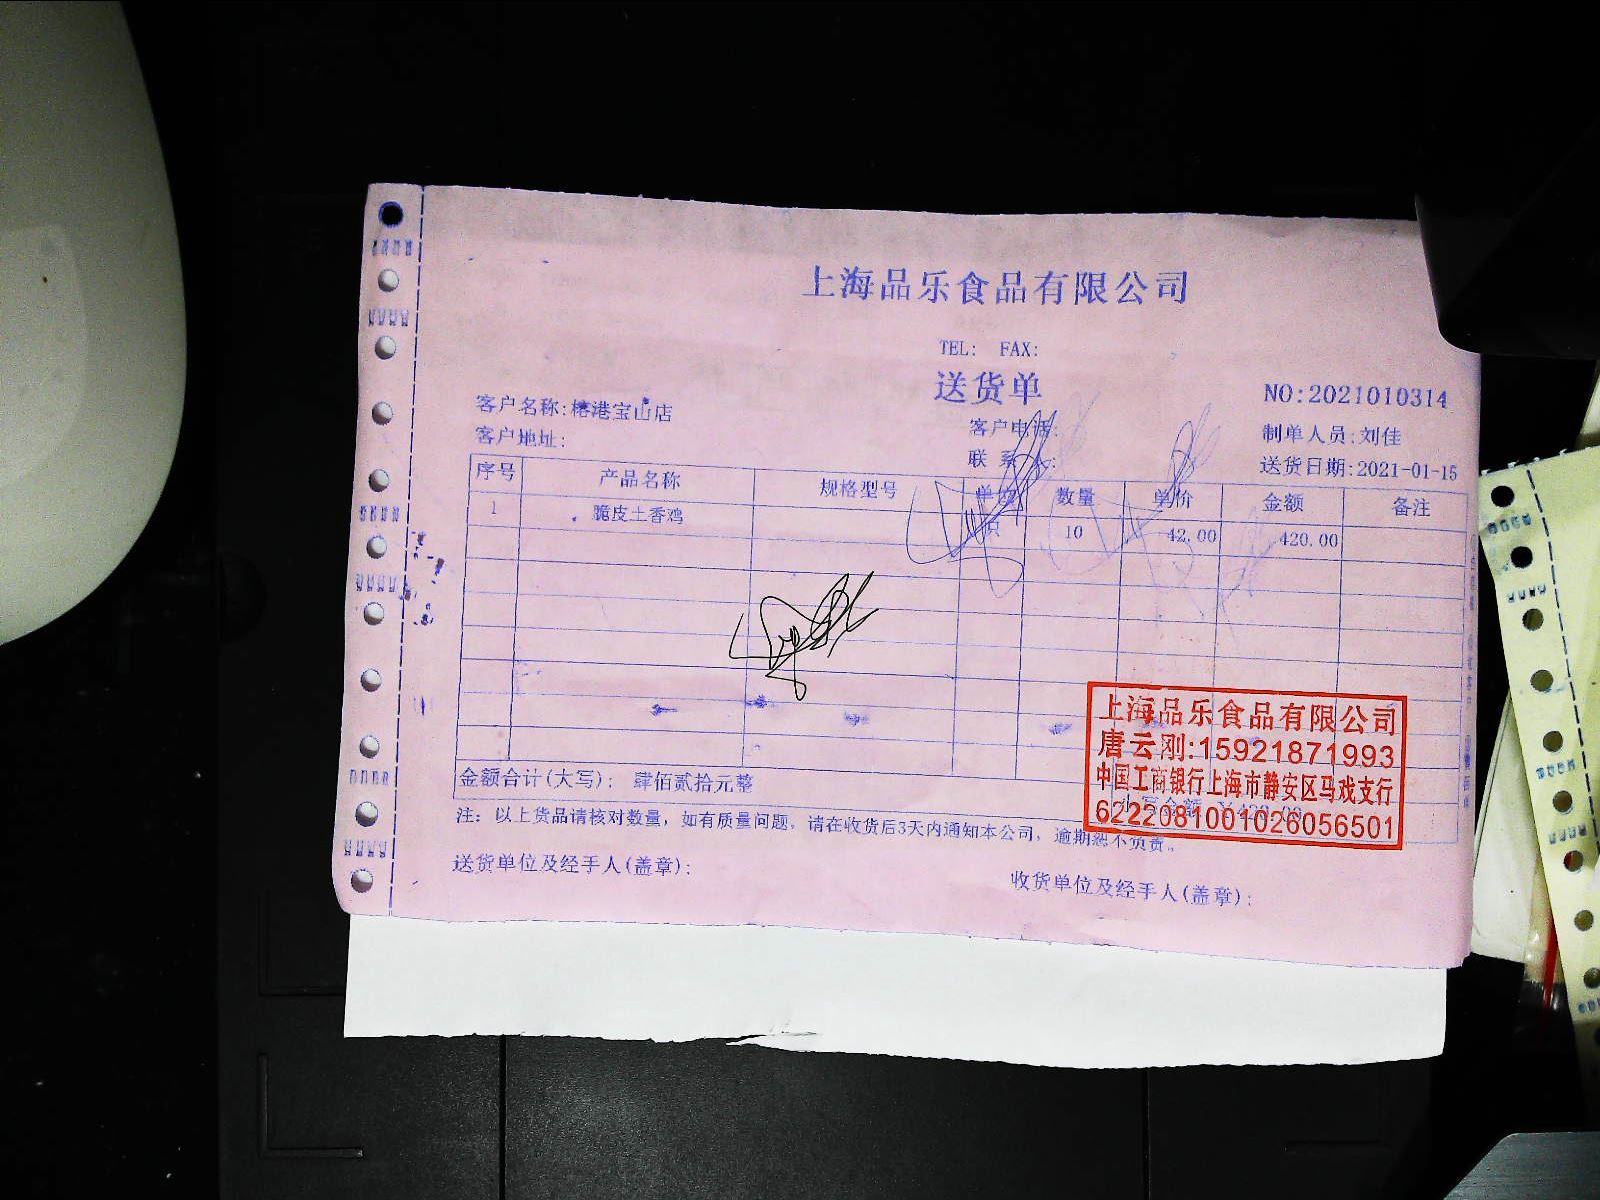 上海品乐食品有限公司
TEL: FAX:
送货单
NO:2021010314
客户名称:榕港宝山店
客户电话:
制单人员:刘佳
客户地址:
联系人:
送货日期:2021-01-15
序号 产品名称 规格型号 单位 数量 单价 金额 备注
1 脆皮土香鸡 10 42.00 420.00
金额合计(大写): 肆佰贰拾元整
注: 以上货品请核对数量, 如有质量问题, 请在收货后3天内通知本公司, 逾期恕不负责。
送货单位及经手人(盖章):
收货单位及经手人(盖章):
上海品乐食品有限公司
唐云刚:15921871993
中国工商银行上海市静安区马戏支行
6222081001026056501